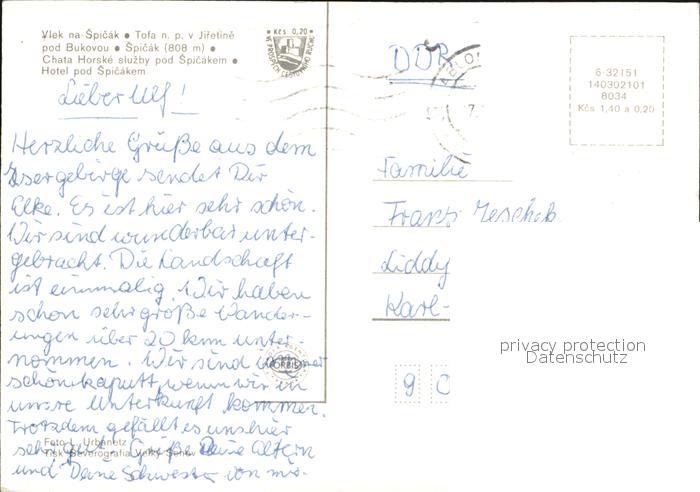 Vlek na Špičák ● Tofa n. p. v Jiřetíně
pod Bukovou ● Špičák (808 m) ●
Chata Horské služby pod Špičákem ●
Hotel pod Špičákem
Kčs 0,20
Lieber Ulf!
Herzliche Grüße aus dem
Isergebirge sendet Dir
Elke. Es ist hier sehr schön.
Wir sind wunderbar unter-
gebracht. Die Landschaft
ist einmalig. Wir haben
schon sehr große Wander-
ungen über 20 km unter-
nommen. Wir sind immer
schön kaputt, wenn wir in
unsre Unterkunft kommen.
Trotzdem gefällt es uns hier
sehr gut. Grüße Deine Eltern
und Deine Schwester von mir.
Foto L. Urbánetz
Tisk Severografia Velký Šenov
ORBIS
DDR
6-32151
140302101
8034
Kčs 1,40 a 0,20
Familie
Franz
Liddy
Karl-
privacy protection
Datenschutz
9